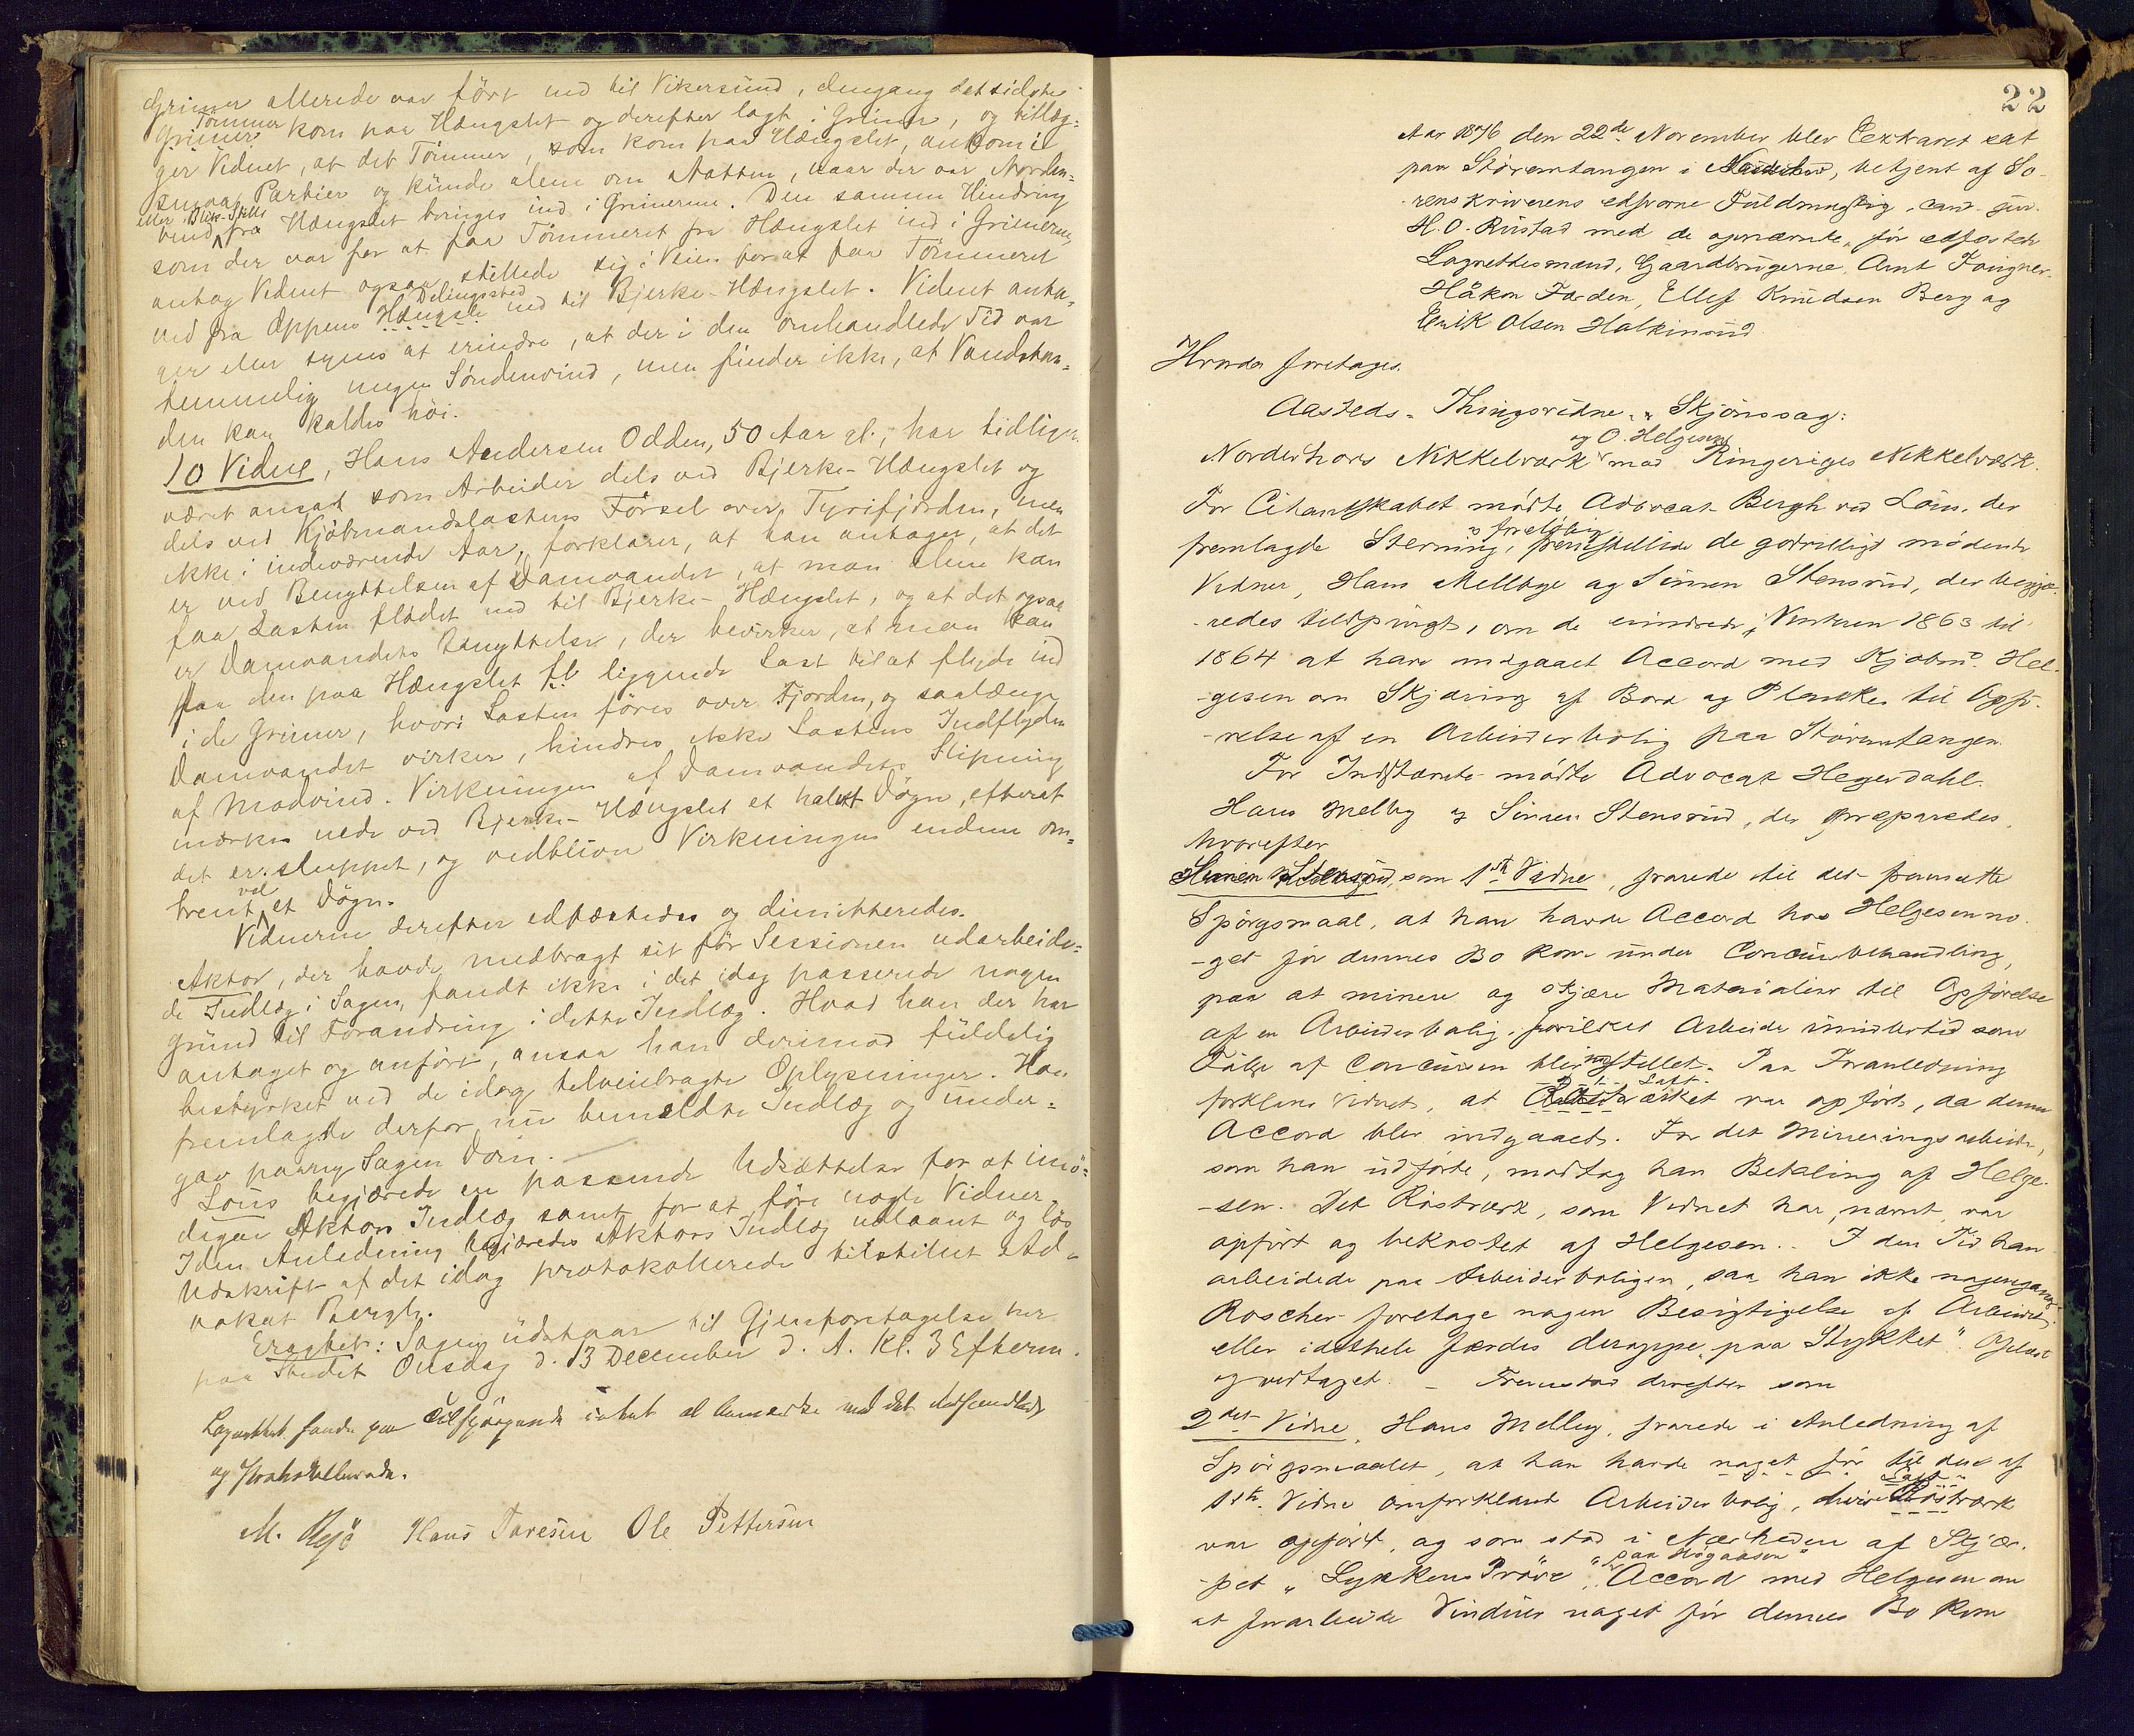 Grimer allerede var ført ned til Vikersund, dengang det sidste
Tømmer
Grimer kom paa Hængslet og derefter lagt i Grime, og tillæg-
ger Vidnet, at det Tømmer, som kom paa Hængslet, ankom i
smaa Partier og kunde alene om Natten, naar der var Norden-
eller Blik-Stille
vind fra Hængslet bringes ind i Grimerne. Den samme Hindring
som der var for at faa Tømmeret fra Hængslet ind i Grimerne,
antog Vidnet ogsaa stillede sig i Veien for at faa Tømmeret
Delingssted
ned fra Oppens Hængsle ned til Bjerke-Hængslet. Vidnet anta-
ger eller synes at erindre, at der i den omhandlede Tid var
temmelig megen Søndenvind, men finder ikke, at Vandstan-
den kan kaldes høi.
10 Vidne, Hans Andersen Odden, 50 Aar gl., har tidligere
været ansat som Arbeider dels ved Bjerke-Hængslet og
dels ved Kjøbmandslastens Førsel over Tyrifjorden, men
ikke i indeværende Aar, forklarer, at han antager, at det
er ved Benyttelsen af Damvandet, at man alene kan
faa Lasten flødet ned til Bjerke-Hængslet, og at det ogsaa
er Damvandets Benyttelse, der bevirker, at man kan
faa den paa Hængslet liggende Last til at flyde ind
i de Grimer, hvori Lasten føres over Fjorden, og saalænge
Damvandet virker, hindres ikke Lastens Indflyden
af Modvind. Virkningen af Damvandets Slipning
mærkes nede ved Bjerke-Hængslet et halvt Døgn, efterat
det er sluppet, og vedbliver Virkningen endnu om-
vel
trent et Døgn.
Vidnerne derefter edfæstedes og dimitteredes.
Aktor, der havde medbragt sit før Sessionen udarbeide-
de Indlæg i Sagen, fandt ikke i det idag passerede nogen
Grund til Forandring i dette Indlæg. Hvad han der har
antaget og anført, ansaa han derimod fuldelig
bestyrket ved de idag tilveiebragte Oplysninger. Han
fremlagde derfor nu bemeldte Indlæg og under-
gav paany Sagen Dom.
Louis begjærede en passende Udsættelse for at imø-
degaa Aktors Indlæg samt for at føre nogle Vidner.
I den Anledning begjæredes Aktors Indlæg udlaant og løs
Udskrift af det idag protokollerede tilstillet Ad-
vokat Bergh.
Eragtet: Sagen udstaar til Gjenforetagelse her
paa Stedet Onsdag d. 13 December d. A. Kl. 3 Efterm.
Lagrettet fandt paa Tilspørgende intet at bemærke ved det Behandlede
og Protokollerede.
M. Rejø Hans Taresen Ole Pettersen
22
Aar 1876 den 22de November blev Extraret sat
paa Størentangen i Norderhov, betjent af So-
renskriverens edsvorne Fuldmægtig, cand. jur.
H. O. Rustad med de opnævnte, før edfæstede
Lagrettesmænd, Gaardbrugerne Arnt Fougner,
Håkon Færden, Ellef Knudsen Berg og
Erik Olsen Halkinrud
Hvorda foretages.
Aasteds- Thingsvidne- & Skjønssag:
og O. Helgesen
Norderhovs Nikkelværk mod Ringeriges Nikkelværk.
For Citantskabet mødte Advocat Bergh ved Louis, der
og foreløbig
fremlagde Stevning, fremstillede de godvilligt mødende
Vidner, Hans Mellbye og Simen Stensrud, der begjæ-
redes tilspurgt, om de erindrede, Vinteren 1863 til
1864 at have indgaaet Accord med Kjøbmd. Hel-
gesen om Skjæring af Bord og Planker til Opfø-
relse af en Arbeiderbolig paa Størentangen.
For Indstævnte mødte Advocat Hegerdahl.
Hans Melby og Simen Stensrud, der præparedes,
hvorefter
Simen Stensrud, som 1ste Vidne, svarede til det fremsatte
Spørgsmaal, at han havde Accord hos Helgesen no-
get før dennes Bo kom under Concursbehandling,
paa at minere og skjære Materialier til Opførelse
af en Arbeiderbolig, hvilket Arbeide imidlertid som
Følge af Concursen blev indstillet. Paa Foranledning
forklarer Vidnet, at værket var opført, da denne
Accord blev indgaaet. For det Mineringsarbeide,
som han udførte, modtog han Betaling af Helge-
sen. Det Røstværk, som Vidnet har nævnt, var
opført og bekostet af Helgesen. I den Tid han
arbeidede paa Arbeiderboligen, saa han ikke nogengang
Roscher foretage nogen Besigtigelse af Arbeidet
eller idethele færdes deroppe „paa Stykket”. Oplæst
og vedtaget. – Fremstod derefter som
2det Vidne, Hans Melbye, svarede i Anledning af
Spørgsmaalet, at han havde noget før til den af
1ste Vidne omforklarede Arbeiderbolig, Røstværk
var opført, og som stod i Nærheden af Skjær-
paa Høgaasen
pet „Lykkens Prøve”, Accord med Helgesen om
at forarbeide Vinduer noget før dennes Bo kom